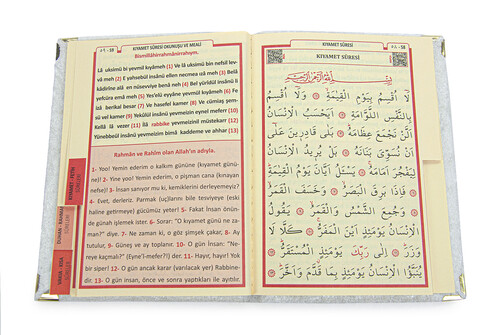 KIYAMET SÛRESİ OKUNUŞU VE MEALİ
Bismillâhirrahmânirrahıym.
Lâ uksimü bi yevmil kıyâmeh (1) Ve lâ uksimü bin nefsil levvâmeh (2) E yahsebül insânü ellen necmea ızâ meh (3) Belâ
kâdirîne alâ en nüsevviye benâ neh (4) Bel yürîdül insânü li
yefcüra emâ meh (5) Yes'elü eyyâne yevmül kıyâmeh (6) Fe
izâ berikal besar (7) Ve hasefel kamer (8) Ve cümiaş şemsü vel kamer (9) Yekûlül insânü yevmeizin eynel meferr (10)
Kellâ lâ vezer (11) İlâ rabbike yevmeizinil müstekarr (12)
Yünebbeül insânü yevmeizim bimâ kaddeme ve ahhar (13)
Rahmân ve Rahîm olan Allah'ın adıyla.
1- Yoo! Yemin ederim o kalkım gününe (kıyamet gününe)! 2- Yine yoo! Yemin ederim, o pişman cana (kınayan
nefse)! 3- İnsan sanıyor mu ki, kemiklerini derlemeyiz?
4- Evet, derleriz. Parmak (uç)larını bile tesviyeye (eski
haline getirmeye) gücümüz yeter! 5- Fakat İnsan önünde günah işlemek ister 6- Sorar: "O kıyamet günü ne zaman?" diye. 7- Ne zaman ki, o göz şimşek çakar, 8- Ay
tutulur, 9- Güneş ve ay toplanır. 10- O gün İnsan: "Nereye kaçmalı?? (Eyne'l-mefer?!) der. 11- Hayır, hayır! Yok
bir siper! 12- O gün ancak karar (varılacak yer) Rabbinedir. 13- O gün İnsan, önce ve sonra yaptıkları ile ayıtılır.
KIYAMET - FETİH
SÛRELERİ
DUHAN - RAHMAN
VÂKIA - KISA
KIYAMET SÛRESİ
KIYAMET SÛRESİ
بِسْمِ اللّٰهِ الرَّحْمٰنِ الرَّحِيمِ
لَٓا اُقْسِمُ بِيَوْمِ الْقِيٰمَةِ وَلَٓا اُقْسِمُ
بِالنَّفْسِ اللَّوَّامَةِ اَيَحْسَبُ الْاِنْسَانُ
اَلَّنْ نَجْمَعَ عِظَامَهُ بَلٰى قَادِرِينَ عَلٰٓى
اَنْ نُسَوِّيَ بَنَانَهُ بَلْ يُرِيدُ الْاِنْسَانُ
لِيَفْجُرَ اَمَامَهُ يَسْـَٔلُ اَيَّانَ يَوْمُ الْقِيٰمَةِ
فَاِذَا بَرِقَ الْبَصَرُ وَخَسَفَ الْقَمَرُ
وَجُمِعَ الشَّمْسُ وَالْقَمَرُ يَقُولُ
الْاِنْسَانُ يَوْمَئِذٍ اَيْنَ الْمَفَرُّ كَلَّا لَا
وَزَرَ اِلٰى رَبِّكَ يَوْمَئِذٍ الْمُسْتَقَرُّ
يُنَبَّؤُا الْاِنْسَانُ يَوْمَئِذٍ بِمَا قَدَّمَ وَاَخَّرَ